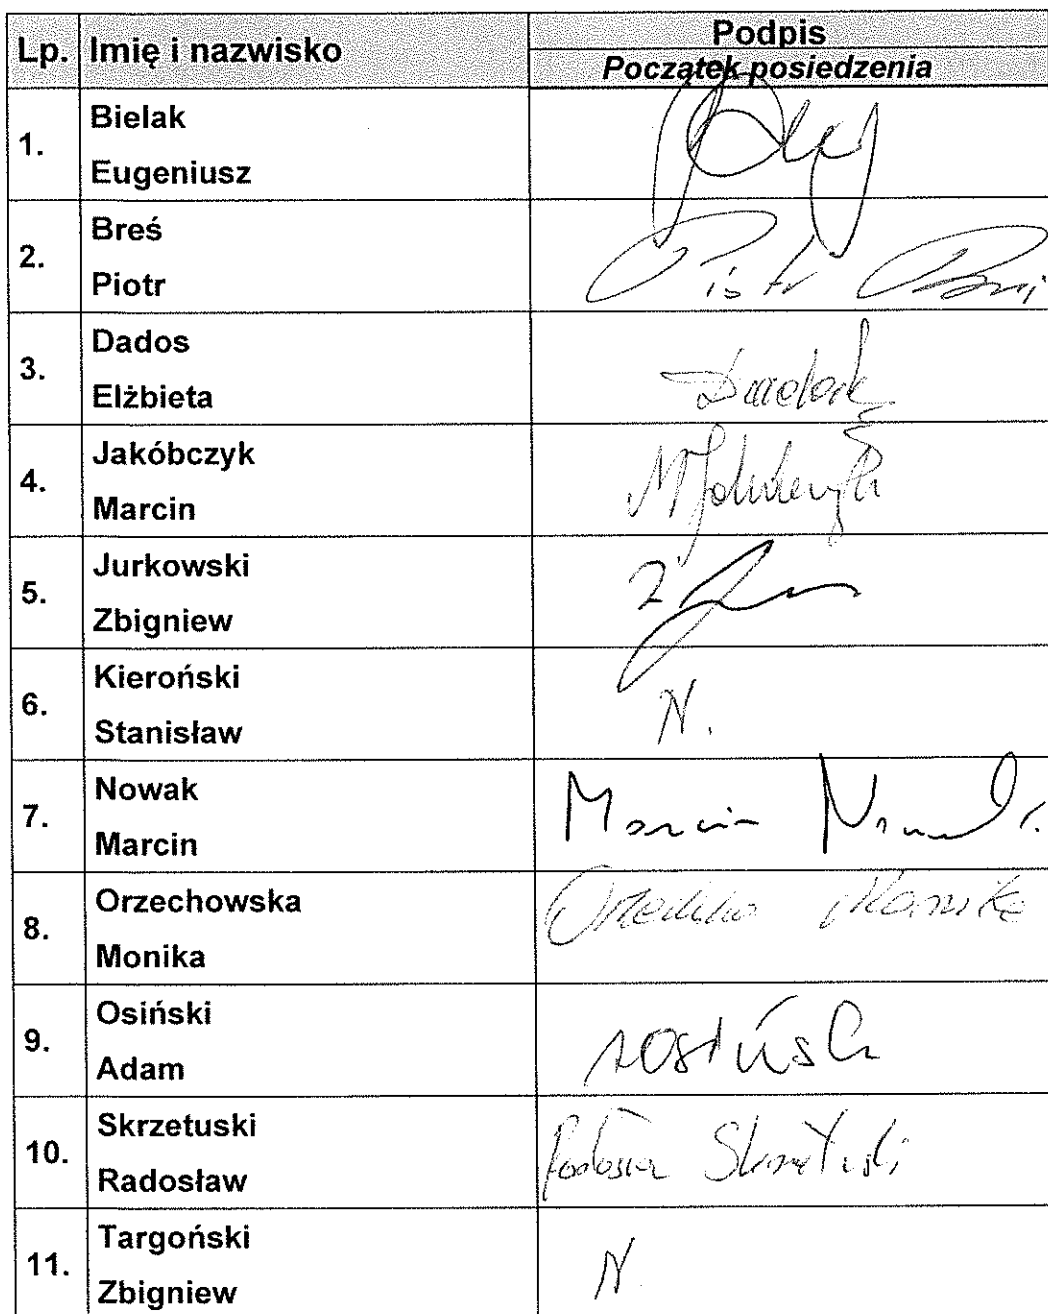 Lp. Imię i nazwisko Podpis
Początek posiedzenia
1. Bielak
Eugeniusz
2. Breś
Piotr
Piotr
3. Dados
Elżbieta
4. Jakóbczyk
Marcin
5. Jurkowski
Zbigniew
6. Kieroński
Stanisław
N.
7. Nowak
Marcin
Marcin Nowak
8. Orzechowska
Monika
Monika
9. Osiński
Adam
AOsiński
10. Skrzetuski
Radosław
Skrzetuski
11. Targoński
Zbigniew
N.